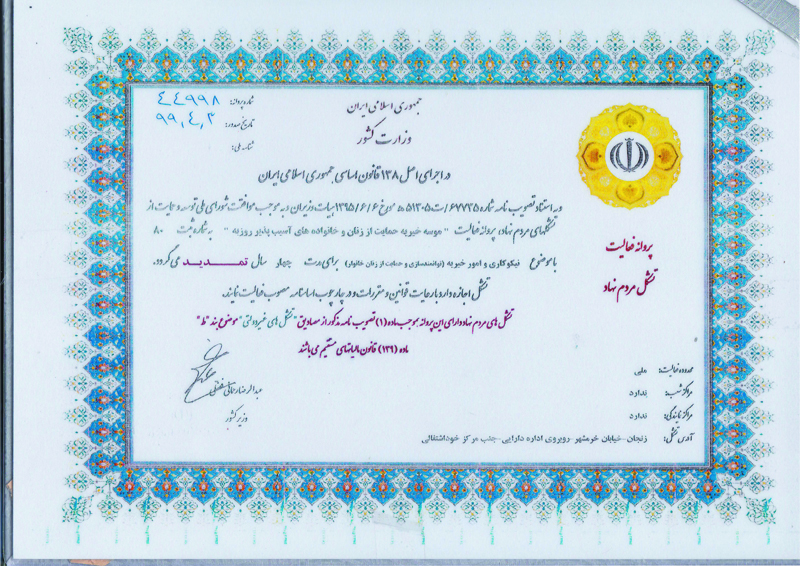 جمهوری اسلامی ایران
وزارت کشور
شماره پروانه: ٤٤٩٩٨
تاریخ صدور: ٩٩,٤,٢
شناسه ملی:
در اجرای اصل ۱۳۸ قانون اساسی جمهوری اسلامی ایران
و به استناد تصویب نامه شماره ۶۷۷۳۵/ت۵۱۳۰۵ه مورخ ۱۳۹۵/۶/۶ هیات وزیران و به موجب موافقت شورای ملی توسعه و حمایت از
تشکلهای مردم نهاد، پروانه فعالیت " موسه خیریه حمایت از زنان و خانواده های آسیب پذیر روزبه " به شماره ثبت ۸۰
با موضوع نیکوکاری و امور خیریه (توانمندسازی و حمایت از زنان خانوار) برای مدت چهار سال تمـــدیــد می گردد.
تشکل اجازه دارد با رعایت قوانین و مقررات و در چارچوب اساسنامه مصوب فعالیت نمایند.
تشکل های مردم نهاد دارای این پروانه بموجب ماده (۱) تصویب نامه مذکور از مصادیق "تشکل های غیردولتی" موضوع بند "ط"
ماده (۱۳۹) قانون مالیاتهای مستقیم می باشند
پروانه فعالیت
تشکل مردم نهاد
عبدالرضا رحمانی فضلی
وزیر کشور
محدوده فعالیت: ملی
مراکز شعب: ندارد
مراکز نمایندگی: ندارد
آدرس تشکل: زنجان-خیابان خرمشهر-روبروی اداره دارایی-جنب مرکز خوداشتغالی